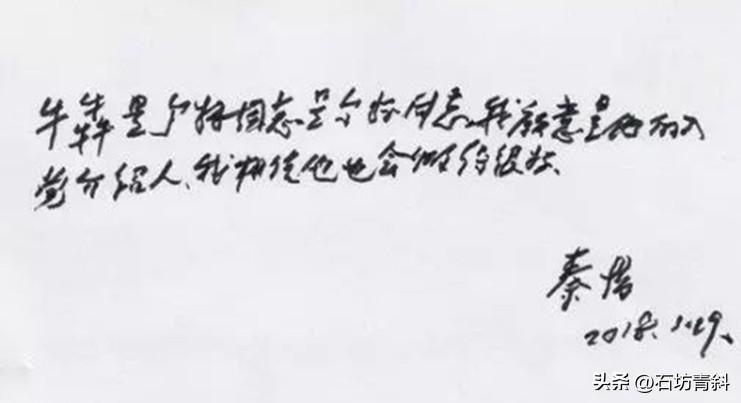 牛犇是个好同志是个好同志,我愿意是他的入
党介绍人、我相信他也会做得很好.
秦怡
2018.1.29、
头条@石坊青斜